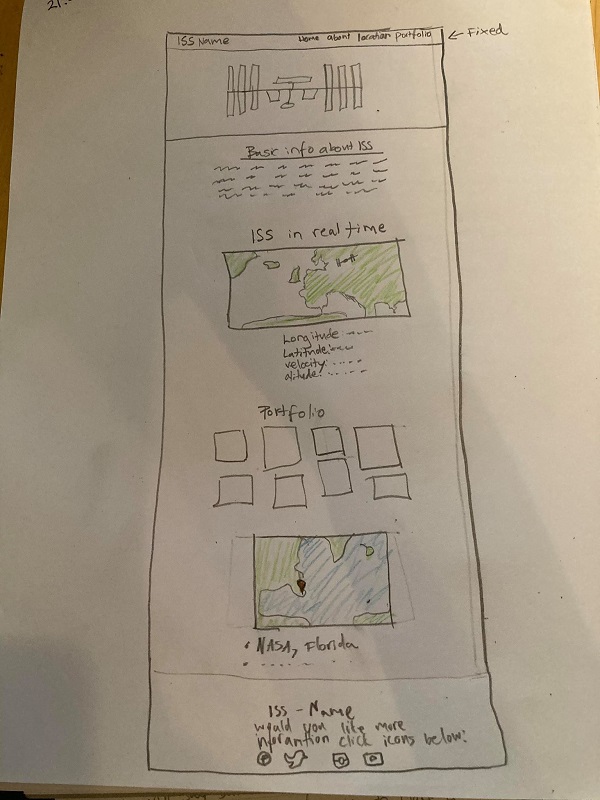 21.
ISS Name Home about location portfolio
← Fixed
Basic info about ISS
ISS in real time
Longitude:
Latitude:
velocity:
altitude:
Portfolio
NASA, Florida
ISS - Name
would you like more
inforamtion click icons below: